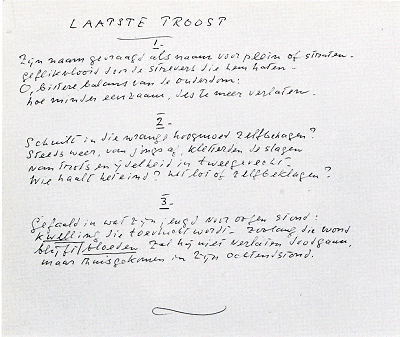 LAATSTE TROOST
1.
Zijn naam gevraagd als naam voor plein of straten.
geflikvlooid door de strevers die hem haten.
O, bittere balans van de ouderdom:
hoe minder eenzaam, des te meer verlaten.
2.
Schuilt in die wrange hoogmoed zelfbehagen?
Steeds weer, van jongsaf, kletterden de slagen
van trots en ijdelheid in tweegevecht.
Wie haalt het eind? het lot of zelfbeklagen?
3.
Gefaald in wat zijn jeugd voor ogen stond:
kwelling die toevlucht wordt. Zolang die wond
blijft bloeden zal hij niet verlaten doodgaan,
maar thuisgekomen in zijn ochtendstond.